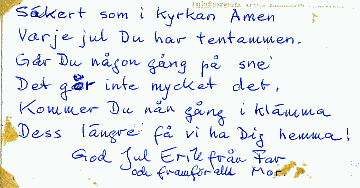 Säkert som i kyrkan Amen
Varje jul Du har tentammen.
Går Du någon gång på sne
Det gör inte mycket det.
Kommer Du nån gång i klämma
Dess längre få vi ha Dig hemma!
God Jul Erik från Far
och framförallt Mor